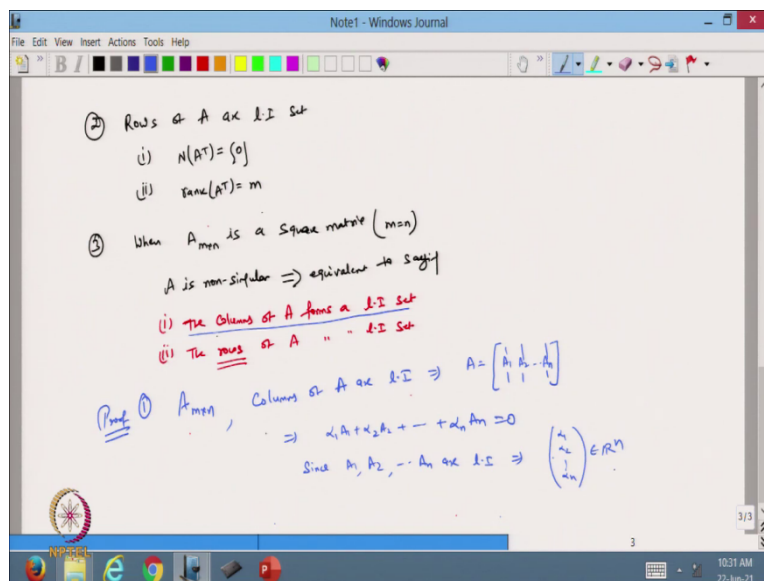 Note1 - Windows Journal
File Edit View Insert Actions Tools Help
② Rows of A are l.I set
(i) N(Aᵀ) = {0}
(ii) rank(Aᵀ) = m
③ When Aₘₓₙ is a square matrix (m=n)
A is non-singular ⇒ equivalent to saying
(i) The columns of A forms a l.I set
(ii) The rows of A " " l.I set
Proof ① Aₘₓₙ, Columns of A are l.I ⇒ A = [A₁ A₂ ... Aₙ]
⇒ α₁A₁ + α₂A₂ + -- + αₙAₙ = 0
Since A₁, A₂, -- Aₙ are l.I ⇒ (α₁ α₂ ⋮ αₙ) ∈ ℝⁿ
3/3
3
NPTEL
10:31 AM
22-Jun-21